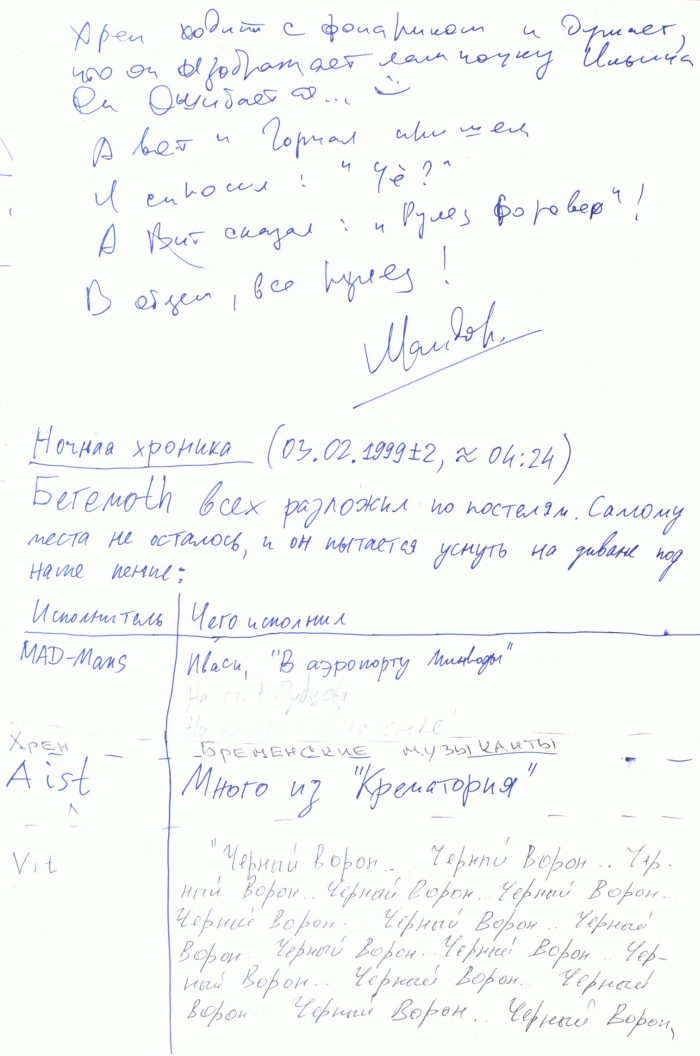 Хрен ходит с фонариком и думает,
что он изображает лампочку Ильича
Он Ошибается... :)
А вот и Горнал пришел
И спросил: "Чё?"
А Вит сказал: "Рулез форевер"!
В общем, все рулез!
Ночная хроника (03.02.1999±2, ≈ 04:24)
Бегемоth всех разложил по постелям. Самому
места не осталось, и он пытается уснуть на диване под
наше пение:
Исполнитель Чего исполнил
MAD-Mans Иваси, "В аэропорту Минводы"
На ст. Н. Рубцова
Хрен Бременские музыканты
Aist Много из "Крематория"
Vit "Черный Ворон.. Черный Ворон.. Чер-
ный Ворон.. Черный Ворон.. Черный Ворон..
Черный Ворон.. Черный Ворон.. Черный
Ворон.. Черный Ворон.. Черный Ворон.. Чер-
ный Ворон.. Черный Ворон.. Черный
Ворон.. Черный Ворон.. Черный Ворон,